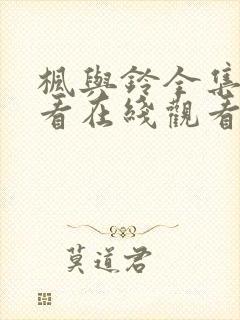 楓與鈴全集
看在綫觀看
莫道君